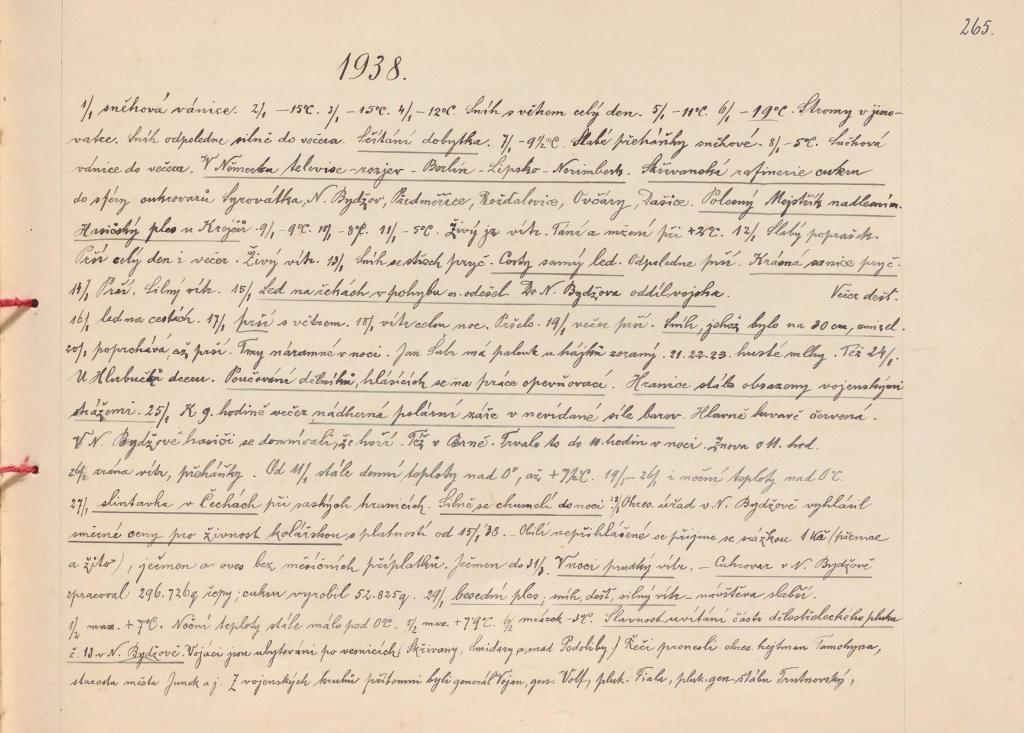 265.
1938.
1/1 sněhová vánice. 2/1 -15°C. 3/1 -15°C. 4/1 -12°C. Sníh s větrem celý den. 5/1 -11°C. 6/1 -19°C. Stromy v jino-
vatce. Sníh odpoledne silně do večera. Sčítání dobytka. 7/1 -9½°C. Slabé přeháňky sněhové. 8/1 -5°C. Sněhová
vánice do večera. V Německu televise-rozjev - Berlín - Lipsko - Norimberk. Skřivanská rafinerie cukru
do sféry cukrovarů Syrovátka, N. Bydžov, Předměřice, Rožďalovice, Ovčáry, Dašice. Polesný Mejstřík nadlesním.
Hasičský ples u Krejčů. 9/1 -9°C. 10/1 -8°C. 11/1 -5°C. Živý jz vítr. Tání a mžení při +2°C. 12/1 Slabý poprašek.
Prší celý den i večer. Živý vítr. 13/1 Sníh se střech pryč. Cesty samý led. Odpoledne prší. Krásná sanice pryč.
14/1 Prší. Silný vítr. 15/1 Led na řekách v pohybu a odešel. Do N. Bydžova oddíl vojska. Večer déšť.
16/1 led na cestách. 17/1 prší s větrem. 18/1 vítr celou noc. Pršelo. 19/1 večer prší. Sníh, jehož bylo na 30 cm, zmizel.
20/1 poprchává až prší. Tmy náramné v noci. Jan má u hájků zoraný. 21.22.23. husté mlhy. Též 24/1.
U dceru. Poučování dělníků, hlásících se na práce opevňovací. Hranice stále obsazeny vojenskými
strážemi. 25/1 K 9. hodině večer nádherná polární záře v nevídané síle barev. Hlavně barvě červená.
V N. Bydžově hasiči se domnívali, že hoří. Též v Brně. Trvalo to do 10 hodin v noci. Znova o 11. hod.
26/1 zrána vítr, přeháňky. Od 11/1 stále denní teploty nad 0°, až +7½°C. 19/1 - 26/1 i noční teploty nad 0°C.
27/1 slintavka v Čechách při saských hranicích. Silně se chumelí do noci. Okres. úřad v N. Bydžově vyhlásil
směrné ceny pro živnost kolářskou s platností od 15/1 38. - Obilí nepřihlášené se přijme se srážkou 1 Kč (pšenice
a žito), ječmen a oves bez měsíčních příplatků. Ječmen do 31/3. V noci prudký vítr. - Cukrovar v N. Bydžově
zpracoval 296.726 q řepy; cukru vyrobil 52.825 q. 29/1 besední ples; sníh, déšť, silný vítr - návštěva slabší.
1/2 max. +7°C. Noční teploty stále málo pod 0°C. 5/2 max. +7°C. 6/2 mrázek -3°C. Slavnost uvítání části dělostřeleckého pluku
č. 13 v N. Bydžově. Vojáci jsou ubytováni po vesnicích: Skřivany, Smidary, a snad Podoliby.) Řeči pronesli okres. hejtman
starosta města Junek a j. Z vojenských kruhů přítomni byli generál Vojen, gen. Volf, pluk. Fiala, pluk. gen. štábu Trutnovský,